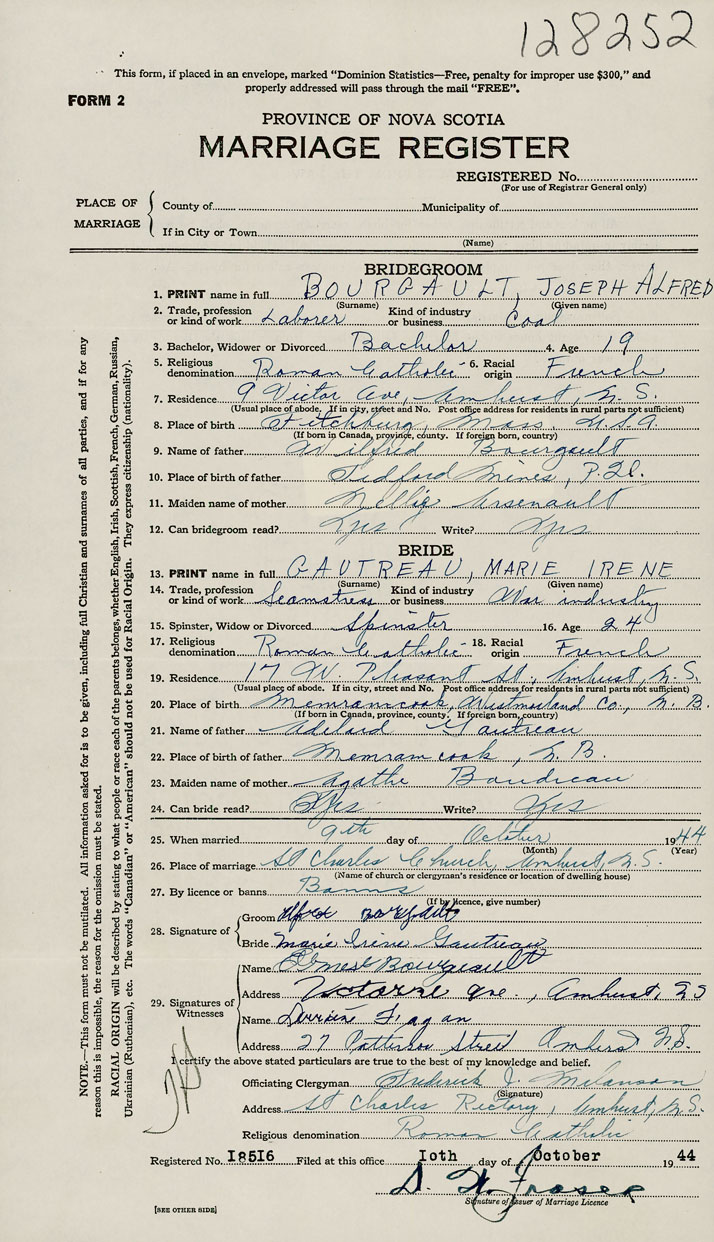 128252
This form, if placed in an envelope, marked "Dominion Statistics—Free, penalty for improper use $300," and
properly addressed will pass through the mail "FREE".
FORM 2
PROVINCE OF NOVA SCOTIA
MARRIAGE REGISTER
REGISTERED No.
(For use of Registrar General only)
PLACE OF MARRIAGE
County of Municipality of
If in City or Town
(Name)
BRIDEGROOM
1. PRINT name in full BOURGAULT, JOSEPH ALFRED
(Surname) (Given name)
2. Trade, profession or kind of work Laborer Kind of industry or business Coal
3. Bachelor, Widower or Divorced Bachelor 4. Age 19
5. Religious denomination Roman Catholic 6. Racial origin French
7. Residence 9 Victor Ave, Amherst, N.S.
(Usual place of abode. If in city, street and No. Post office address for residents in rural parts not sufficient)
8. Place of birth Fitchburg, Mass. U.S.A.
(If born in Canada, province, county. If foreign born, country)
9. Name of father Wilfred Bourgault
10. Place of birth of father Tedford Mines, P.Q.
11. Maiden name of mother Nellie Arsenault
12. Can bridegroom read? Yes Write? Yes
BRIDE
13. PRINT name in full GAUTREAU, MARIE IRENE
(Surname) (Given name)
14. Trade, profession or kind of work Seamstress Kind of industry or business War industry
15. Spinster, Widow or Divorced Spinster 16. Age 24
17. Religious denomination Roman Catholic 18. Racial origin French
19. Residence 17 W. Pleasant St., Amherst, N.S.
(Usual place of abode. If in city, street and No. Post office address for residents in rural parts not sufficient)
20. Place of birth Memramcook, Westmorland Co., N.B.
(If born in Canada, province, county. If foreign born, country)
21. Name of father Adelard Gautreau
22. Place of birth of father Memramcook, N.B.
23. Maiden name of mother Agathe Boudreau
24. Can bride read? Yes Write? Yes
25. When married 9th day of October 1944
(Month) (Year)
26. Place of marriage St Charles Church, Amherst, N.S.
(Name of church or clergyman's residence or location of dwelling house)
27. By licence or banns Banns
(If by licence, give number)
28. Signature of
Groom Alfred
Bride Marie Irene Gautreau
29. Signatures of Witnesses
Name Ernest Bourgeault
Address ave., Amherst,
Name Flagan
Address 27 Patterson Street Amherst N.S.
I certify the above stated particulars are true to the best of my knowledge and belief.
Officiating Clergyman Frederick J. Melanson
(Signature)
Address St Charles Rectory, Amherst, N.S.
Religious denomination Roman Catholic
Registered No. I85I6 Filed at this office Ioth day of October 1944
Fraser
Signature of Issuer of Marriage Licence
[SEE OTHER SIDE]
NOTE.—This form must not be mutilated. All information asked for is to be given, including full Christian and surnames of all parties, and if for any
reason this is impossible, the reason for the omission must be stated.
RACIAL ORIGIN will be described by stating to what people or race each of the parents belongs, whether English, Irish, Scottish, French, German, Russian,
Ukrainian (Ruthenian), etc. The words "Canadian" or "American" should not be used for Racial Origin. They express citizenship (nationality).